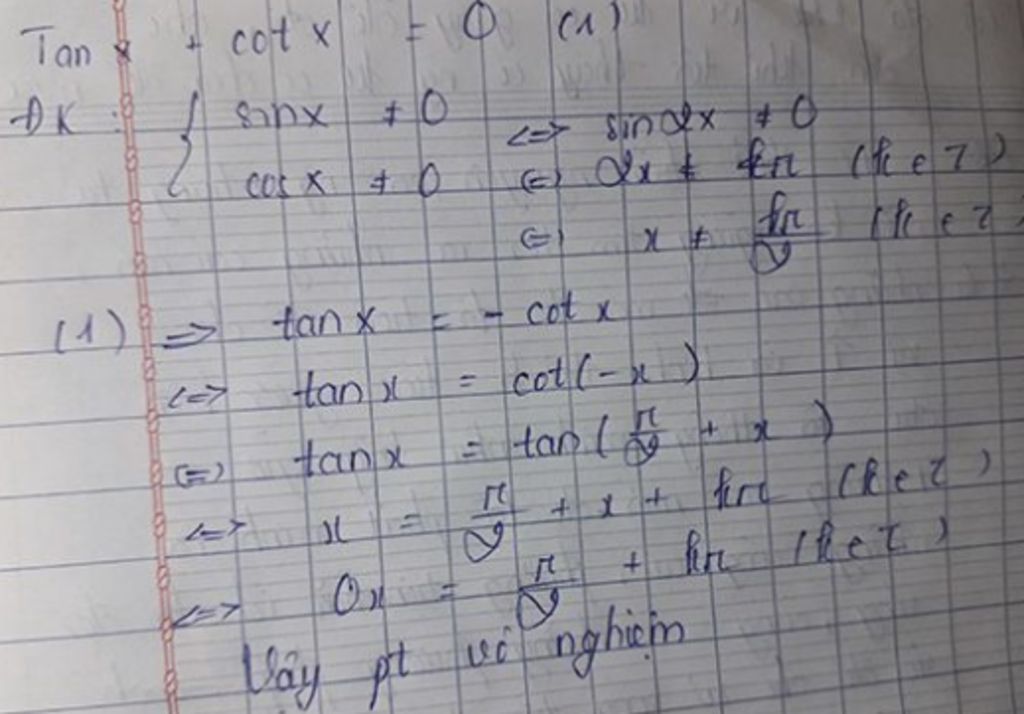 Tan x + cot x = 0 (1)
ĐK : { sinx ≠ 0 <=> sin2x ≠ 0
cosx ≠ 0 <=> 2x ≠ kπ (k ∈ Z)
<=> x ≠ kπ/2 (k ∈ Z)
(1) => tanx = - cot x
<=> tanx = cot(-x)
<=> tanx = tan(π/2 + x)
<=> x = π/2 + x + kπ (k ∈ Z)
<=> 0x = π/2 + kπ (k ∈ Z)
Vậy pt vô nghiệm